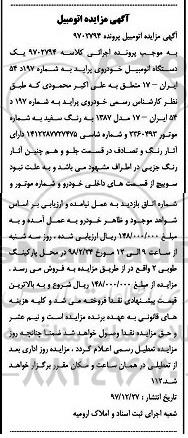 آگهی مزایده اتومبیل
آگهی مزایده اتومبیل پرونده ۹۷۰۲۷۹۴
به موجب پرونده اجرائی کلاسه ۹۷۰۲۷۹۴ یک
دستگاه اتومبیل خودروی پراید به شماره ۱۹۷د۵۴
ایران – ۱۷ متعلق به علی اکبر محمودی که طبق
نظر کارشناس رسمی خودروی پراید به شماره ۱۹۷د
۵۴ ایران – ۱۷ مدل ۱۳۸۷ به رنگ سفید به شماره
موتور ۲۳۶۰۴۹۳ و شماره شاسی ۱۴۱۲۲۸۷۷۲۷۴۷۵ دارای
آثار رنگ و تصادف در قسمت جلو و هم چنین آثار
رنگ جزیی در اطراف مشهود می باشد و به علت نبود
سوییچ از قسمت های داخلی خودرو و شماره موتور و
شماره اتاق بازدید به عمل نیامده و ارزیابی بر اساس
شواهد موجود و ظاهر خودرو به عمل آمده و به
مبلغ ۱۴۸/۰۰۰/۰۰۰ ریال ارزیابی شده ، روز سه شنبه
از ساعت ۹ الی ۱۲ مورخ ۹۸/۲/۲۴ در محل پارکینگ
طوبی ۲ واقع در از طریق مزایده به فروش می رسد .
مزایده از مبلغ ۱۴۸/۰۰۰/۰۰۰ ریال شروع و به بالاترین
قیمت پیشنهادی نقدا فروخته می شد و کلیه هزینه
های قانونی به عهده برنده مزایده است و نیم عشر
و حق مزایده نقدا وصول خواهد شد ضمنا چنانچه روز
مزایده تعطیل رسمی اعلام گردد ، مزایده روز اداری بعد
از تعطیلی در همان ساعت و مکان مقرر برگزار خواهد
شد.۱۱۲
تاریخ انتشار : ۹۷/۱۲/۲۷
شعبه اجرای ثبت اسناد و املاک ارومیه